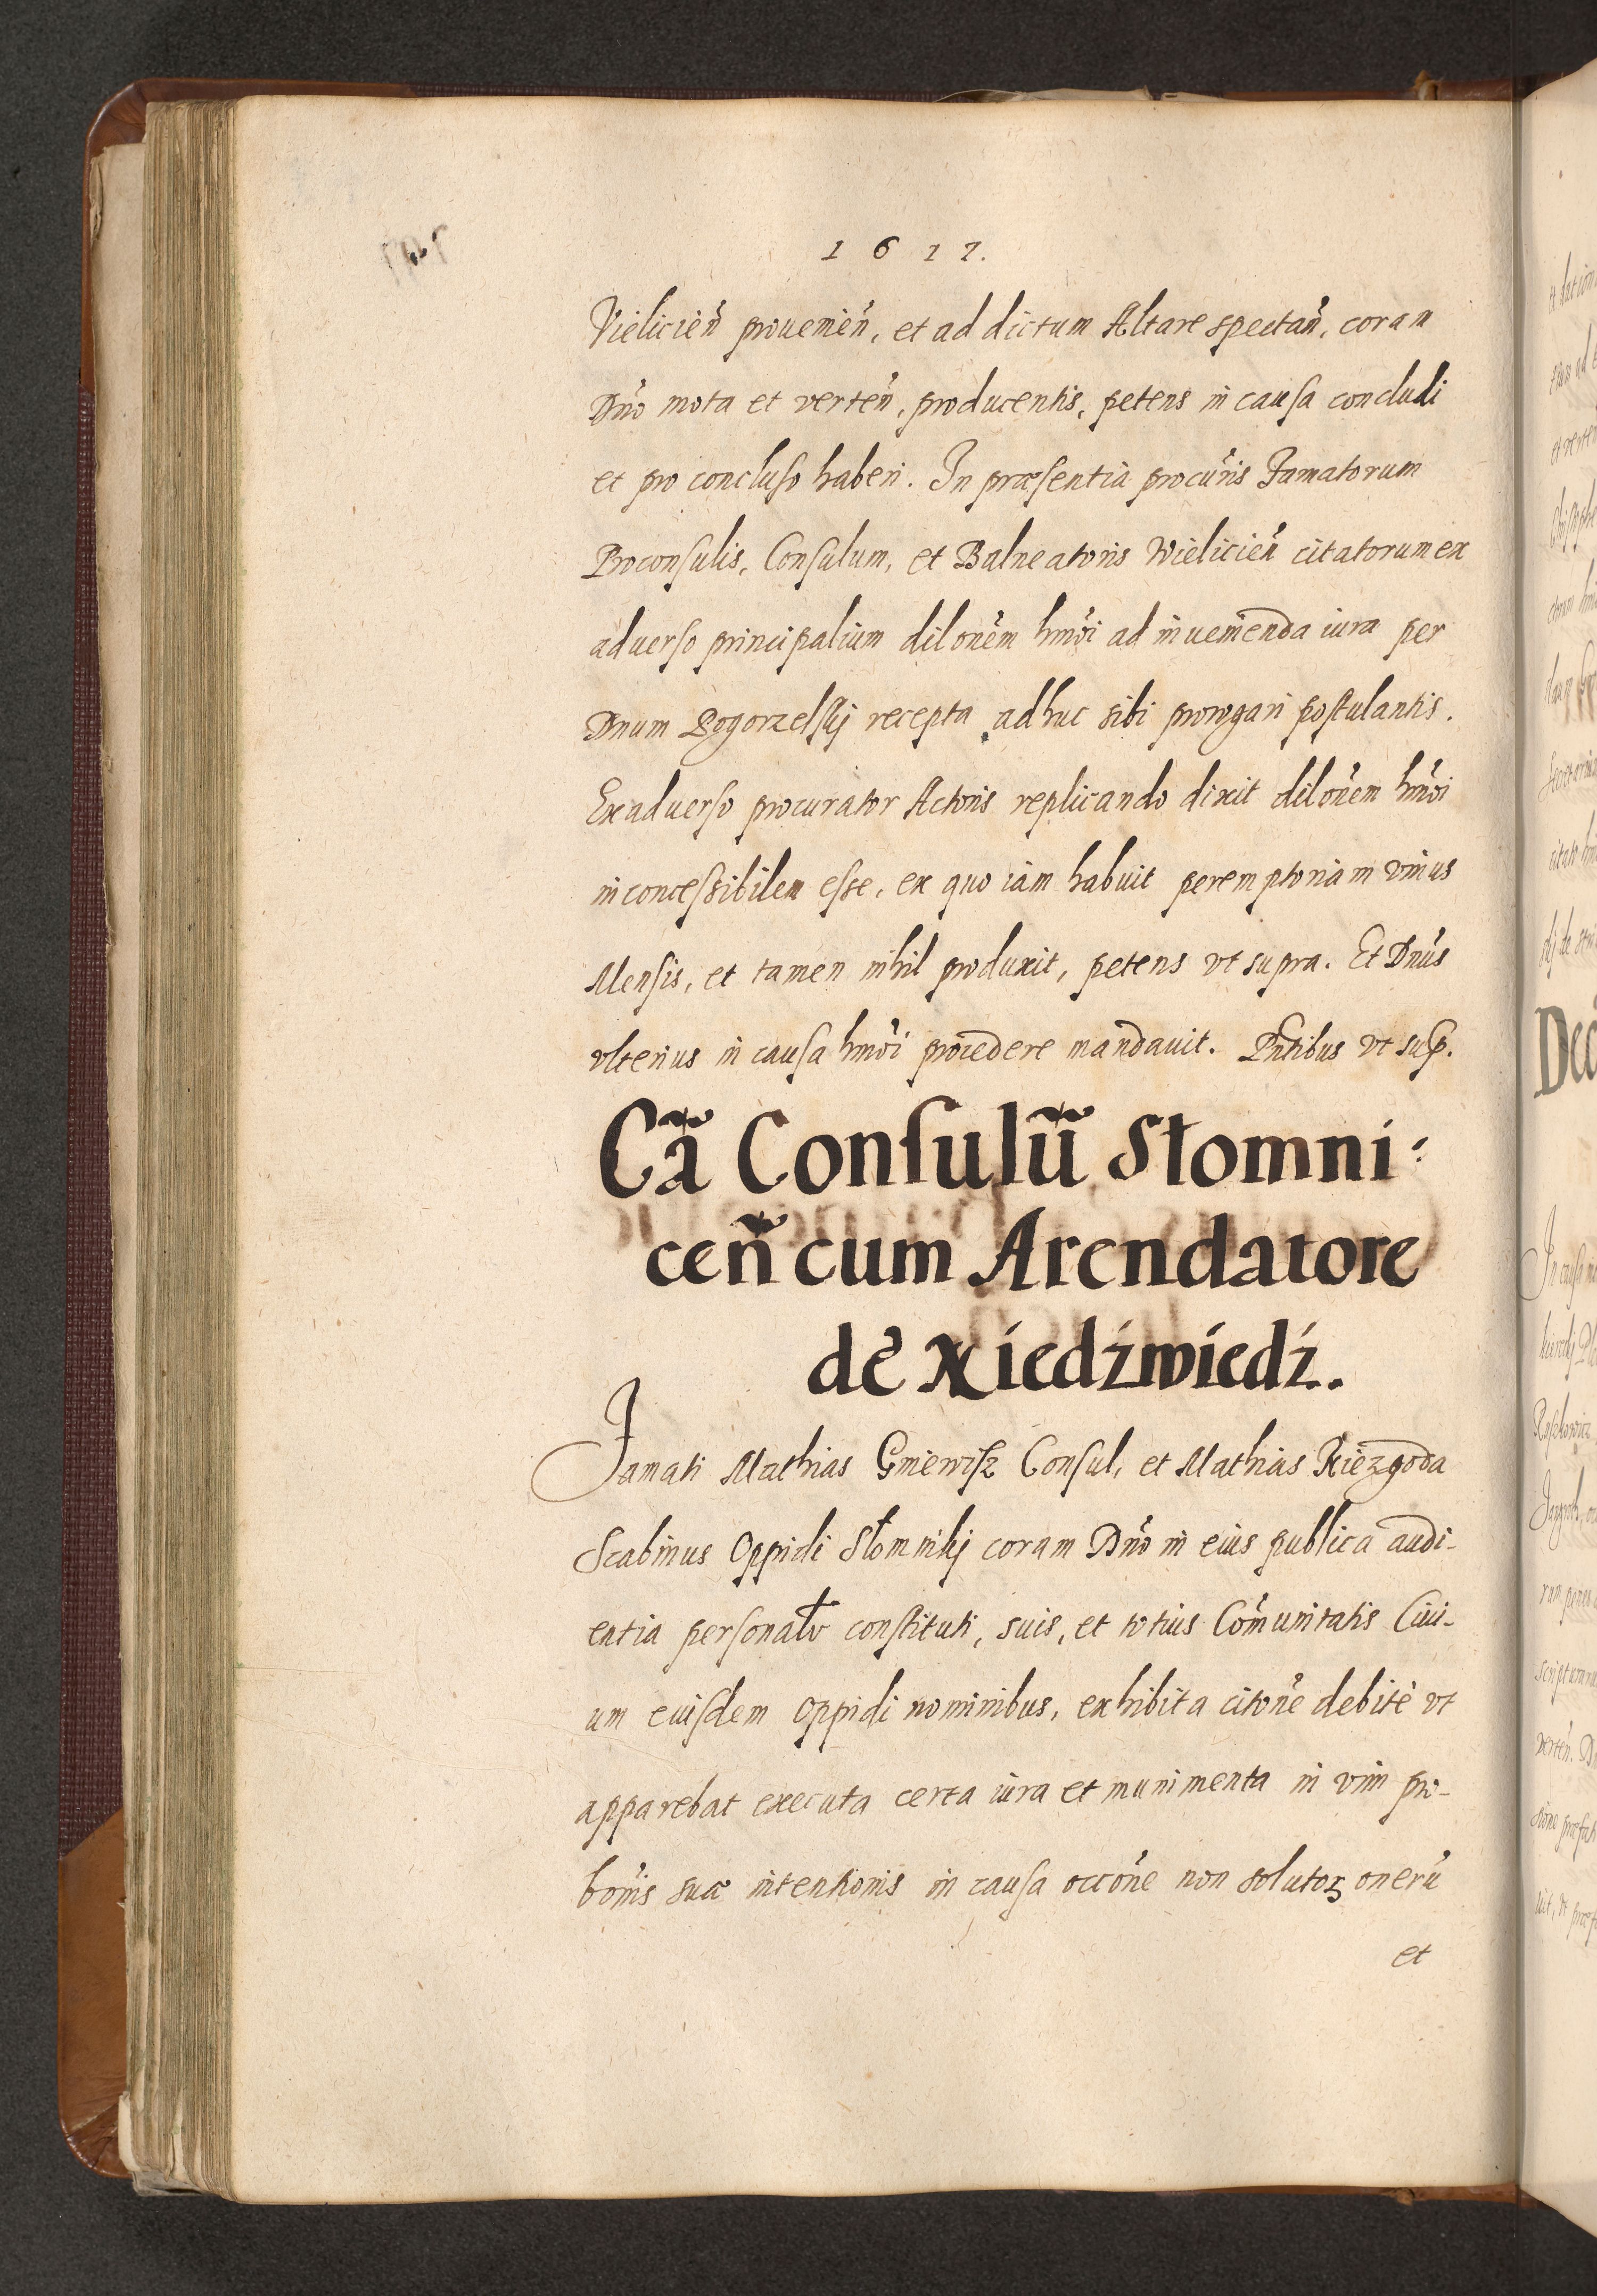 1617.
Vielicieñ proueniеñ, et ad dictum Altare spectañ, coram
Dño mota et verteñ, producentis, petens in causa concludi
et pro concluso haberi. In præsentia procuris Famatorum
Proconsulis, Consulum, et Balneatoris Wielicień citatorum ex
aduerso principalium dilonem hmoi ad inuenienda iura per
Dnum Pogorzelskij recepta adhuc sibi prorogari postulantis.
Ex aduerso procurator Actoris replicando dixit dilonem hmoi
inconcessibilem esse, ex quo iam habuit peremptoriam vnius
Mensis, et tamen nihil produxit, petens vt supra. Et Dnus
vlterius in causa hmoi procedere mandauit. Pntibus vt sup.
Cã Consulũ Słomni:
ceñ cum Arendatore
de Niedźwiedź.
Famati Mathias Gmiewisz Consul, et Mathias Niezgoda
Scabinus Oppidi Słomnikj coram Dño in eius publica audi-
entia personalr constituti, suis, et totius Comunitatis Ciui-
um euisdem Oppidi nominibus, exhibita citone debitè vt
apparebat executa certa iura et munimenta in vim pro-
bonis suæ intentionis in causa occone non solutoꝝ onerũ
et